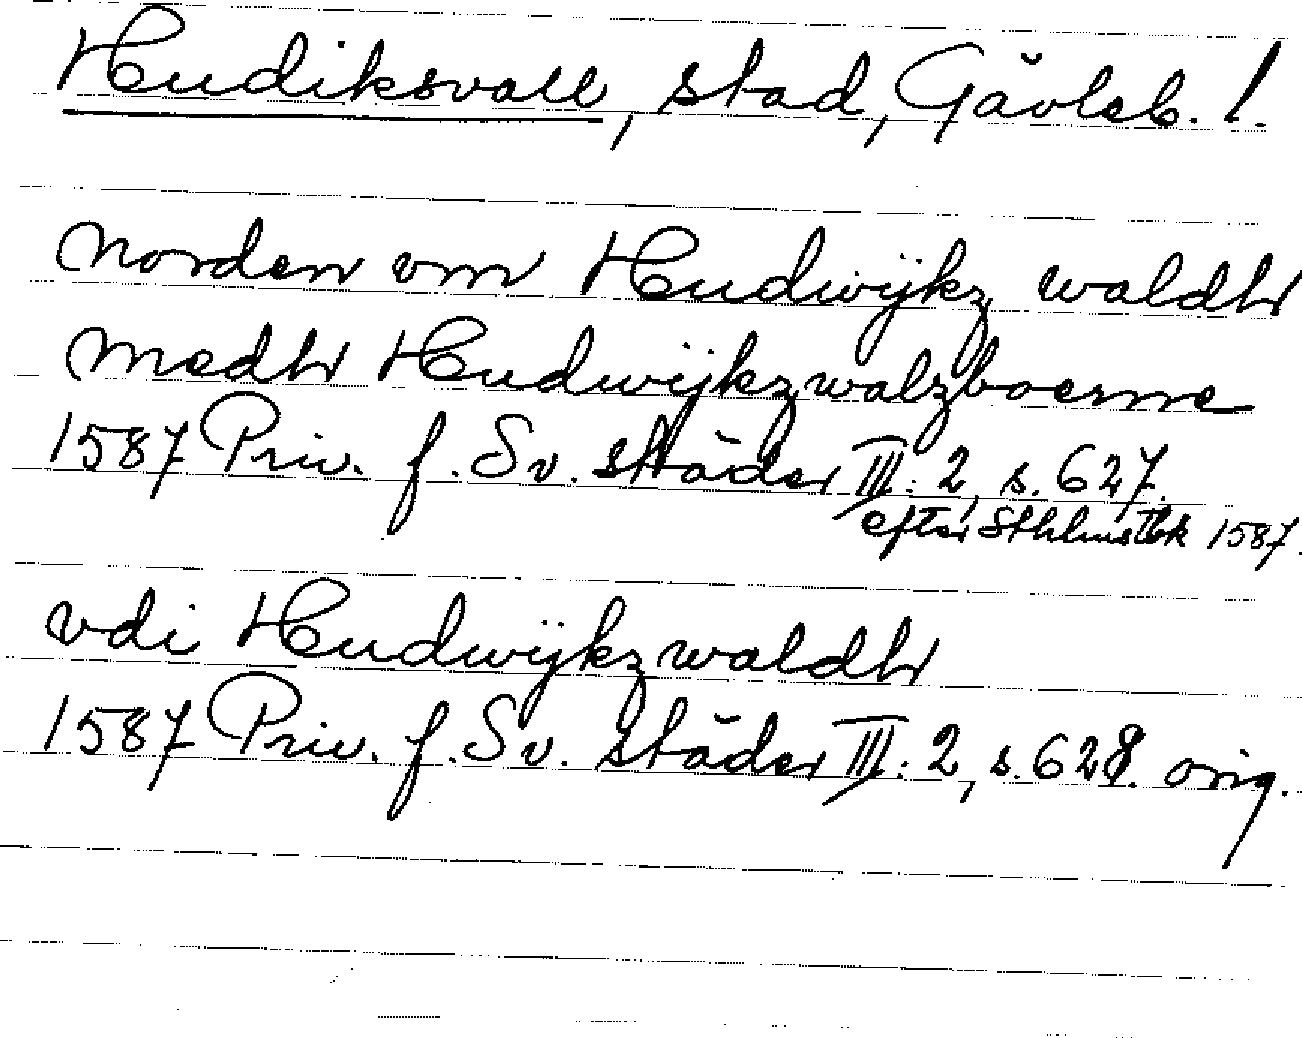 Hudiksvall, stad, Gävleb. l.
norden om Hudwijkz waldh
medh Hudwijkzwalzboerne
1587 Priv. f. Sv. städer III: 2, s. 627.
efter Sthlmstbk 1587.
vdi Hudwijkzwaldh
1587 Priv. f. Sv. städer III: 2, s. 628. orig.